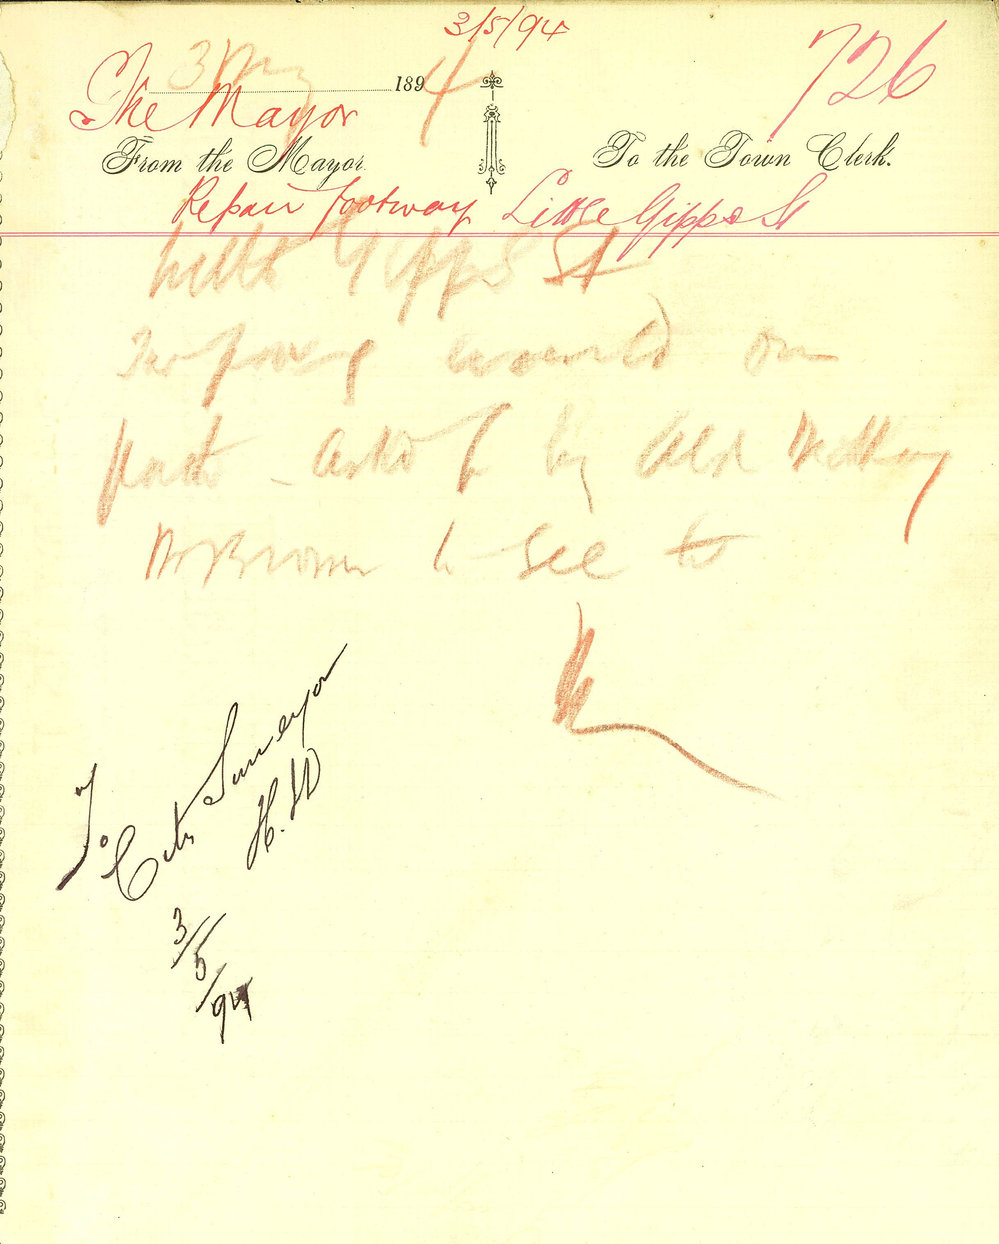 3/5/94
726
3 May 1894
The Mayor
From the Mayor.
To the Town Clerk.
Repair footway Little Gipps St
Little Gipps St
on
path - asked for by Ald
Mr Brown to see to
To City Surveyor
H.D
3/5/94